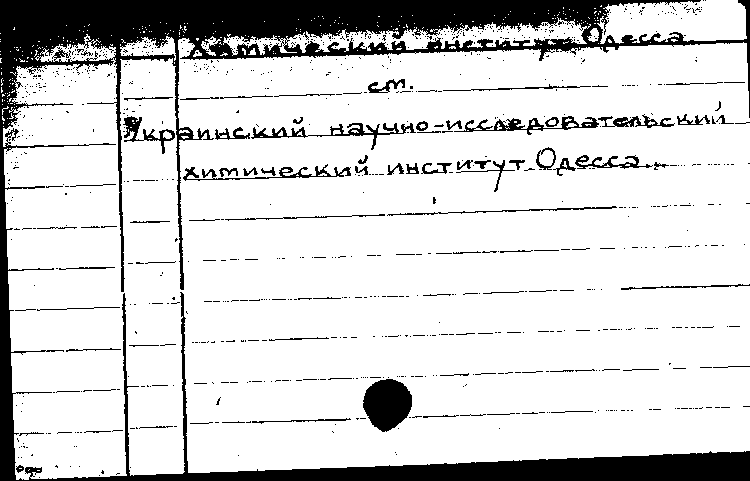 Химический институт Одесса.
см.
Украинский научно-исследовательский
химический институт. Одесса.